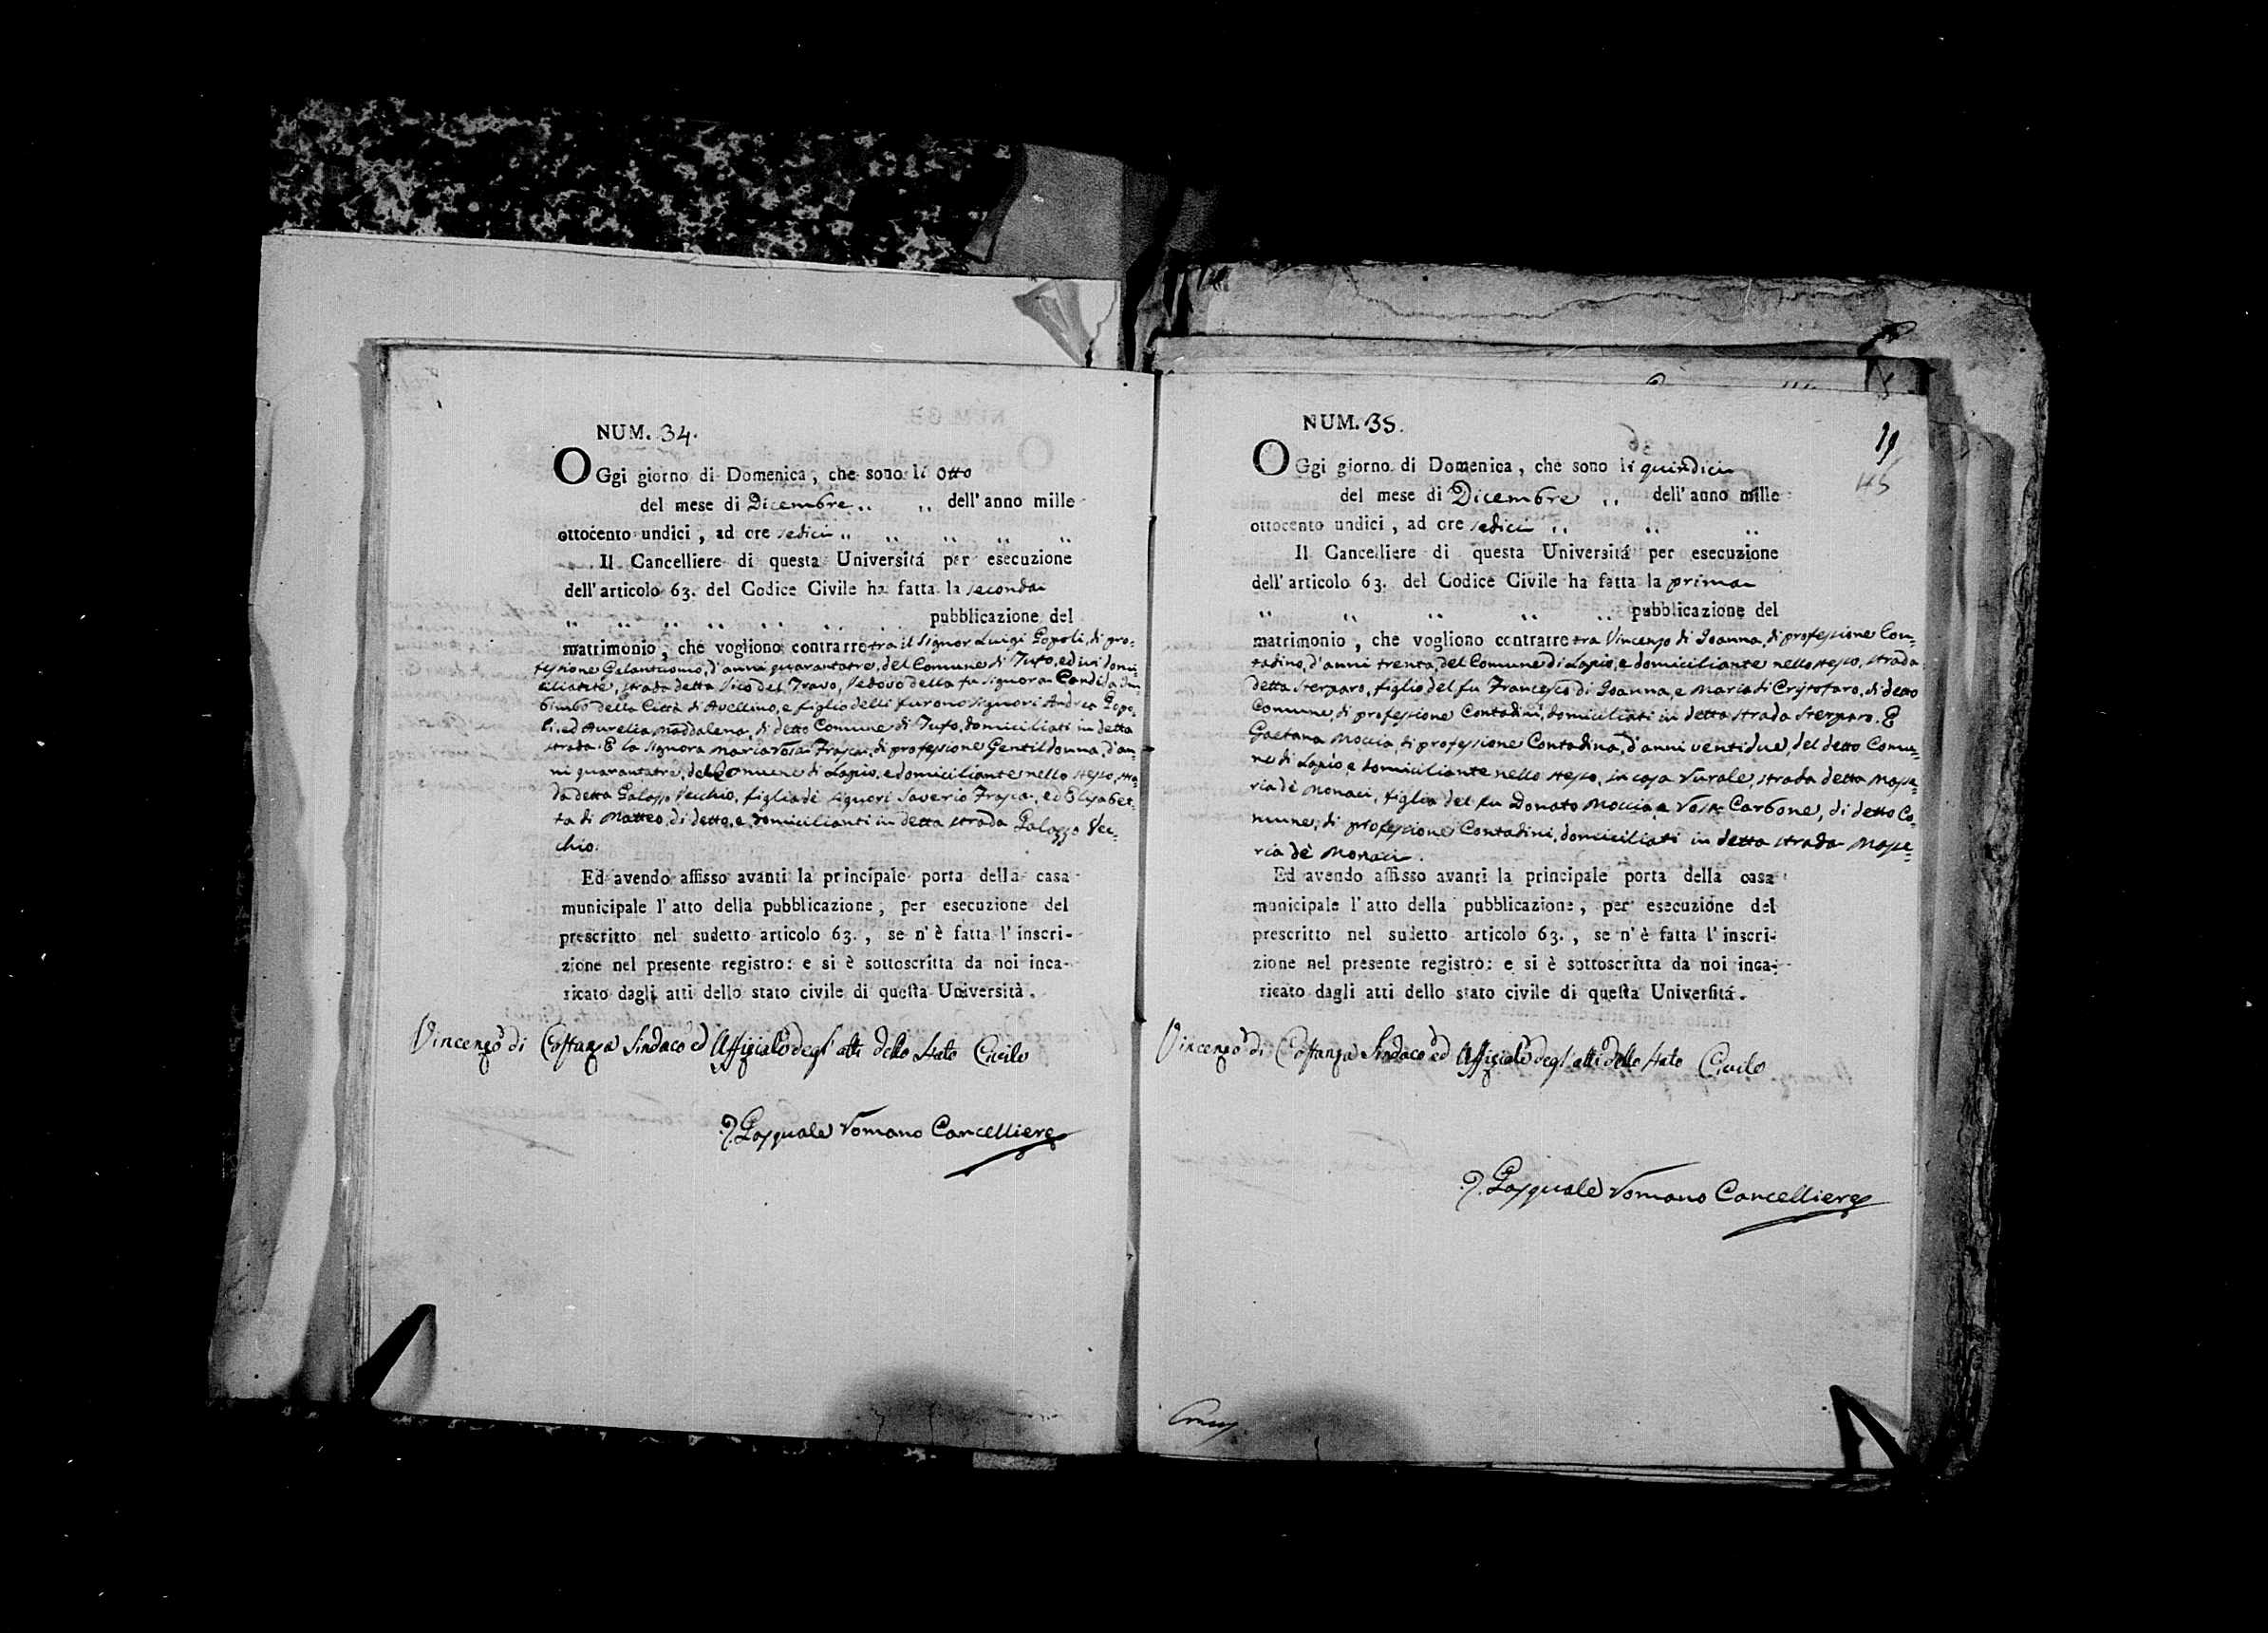 NUM. 34.
OGgi giorno di Domenica, che sono li otto
del mese di Dicembre ,, ,, dell'anno mille
ottocento undici, ad ore sedici ,, ,, ,, ,, ,,
Il Cancelliere di questa Universitá per esecuzione
dell'articolo 63. del Codice Civile ha fatta la seconda
,, ,, ,, ,, ,, ,, ,, pubblicazione del
matrimonio, che vogliono contrarre tra il Signor Luigi Popoli, di pro-
fessione Galantuomo, d'anni quarantatre, del Comune di Tufo, ed ivi domi-
ciliante, strada detta Vico del Travo, Vedovo della fu Signora Candida
della Città di Avellino, e figlio delli furono Signori Andrea Popo-
li, ed Aurelia Maddalena, di detto Comune di Tufo, domiciliati in detta
strada. E la Signora Maria Rosa Frasca, di professione Gentildonna, d'an-
ni quarantatre, del Comune di Lapio, e domiciliante nello stesso, stra-
da detta Palazzo Vecchio, figlia de' Signori Saverio Frasca, ed Elisabet-
ta di Matteo, di detto, e domicilianti in detta strada Palazzo Vec-
chio.
Ed avendo affisso avanti la principale porta della casa
municipale l'atto della pubblicazione, per esecuzione del
prescritto nel sudetto articolo 63., se n'è fatta l'inscri-
zione nel presente registro: e si è sottoscritta da noi inca-
ricato dagli atti dello stato civile di questa Università.
Vincenzo di Costanza Sindaco ed Uffiziale degl'atti dello Stato Civile
P. Pasquale Romano Cancelliere
NUM. 35.
19
45
OGgi giorno di Domenica, che sono li quindici
del mese di Dicembre ,, dell'anno mille
ottocento undici, ad ore sedici ,, ,, ,,
Il Cancelliere di questa Universitá per esecuzione
dell'articolo 63. del Codice Civile ha fatta la prima
,, ,, ,, ,, ,, pubblicazione del
matrimonio, che vogliono contrarre tra Vincenzo di Joanna, di professione Con-
tadino, d'anni trenta, del Comune di Lapio, e domiciliante nello stesso, strada
detta Sterparo, figlio del fu Francesco di Joanna, e Maria di Cristofaro, di detto
Comune, di professione Contadini, domiciliati in detta strada Sterparo. E
Gaetana Moccia, di professione Contadina, d'anni ventidue, del detto Comu-
ne di Lapio, e domiciliante nello stesso, in casa rurale, strada detta Masse-
ria de' Monaci, figlia del fu Donato Moccia, e Rosa Carbone, di detto Co-
mune, di professione Contadini, domiciliati in detta strada Masse-
ria de' Monaci.
Ed avendo affisso avanti la principale porta della casa
municipale l'atto della pubblicazione, per esecuzione del
prescritto nel sudetto articolo 63., se n'è fatta l'inscri-
zione nel presente registro: e si è sottoscritta da noi inca-
ricato dagli atti dello stato civile di questa Universitá.
Vincenzo di Costanza Sindaco ed Uffiziale degl'atti dello Stato Civile
P. Pasquale Romano Cancelliere